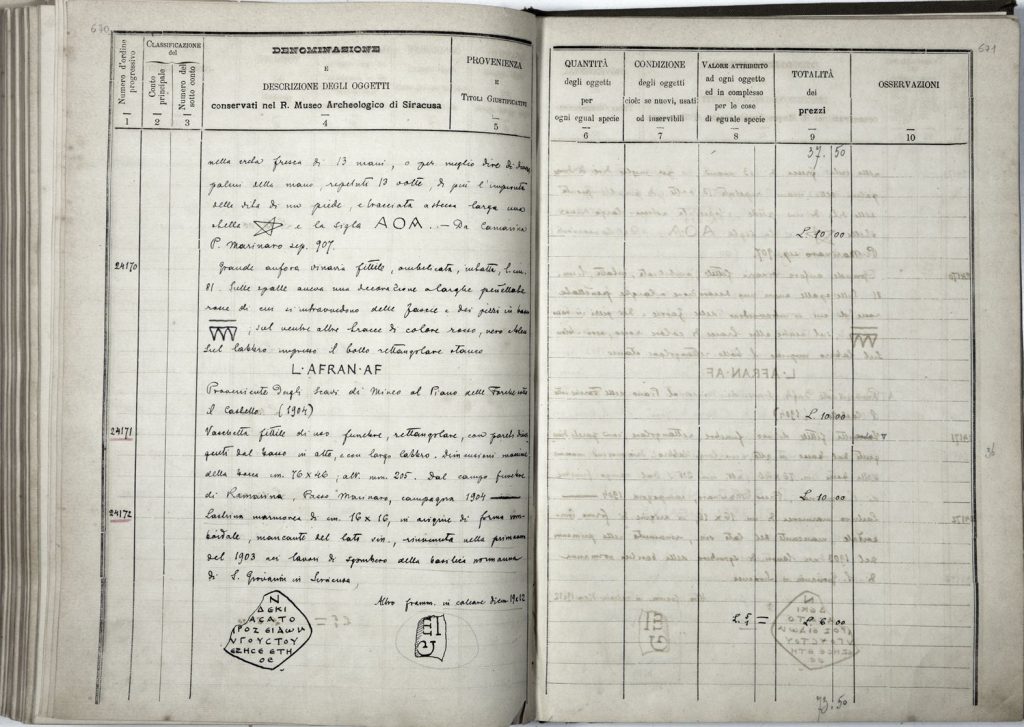 670
Numero d'ordine progressivo
CLASSIFICAZIONE
del
Conto principale
Numero del sotto conto
DENOMINAZIONE
E
DESCRIZIONE DEGLI OGGETTI
conservati nel R. Museo Archeologico di Siracusa
PROVENIENZA
E
TITOLI GIUSTIFICATIVI
1 2 3 4 5
nella creta fresca di 13 mani, o per meglio dire di
palmi della mano, ripetute 13 volte, di più l'impronta
delle dita di un piede, e tracciata a stecca larga una
stella e la sigla ΑΟΑΛ. — Da Camarina
P. Marinaro sep. 907.
24170
Grande anfora vinaria fittile, ombelicata, intatta, l. cm.
81. Sulle spalle aveva una decorazione a larghe penellate
rosse di cui si intravvedono delle fascie e dei
; sul ventre altre tracce di colore rosso,
Sul labbro impresso il bollo rettangolare stanco
L·AFRAN·AF
Proveniente dagli scavi di Mineo al Piano delle
il Castello. (1904)
24171
Vaschetta fittile di uso funebre, rettangolare, con pareti
dal basso in alto, e con largo labbro. Dimensioni massime
della bocca cm. 76 x 46; alt. mm. 205. Dal campo funebre
di Kamarina, Passo Marinaro, campagna 1904 —
24172
Lastrina marmorea di cm. 16 x 16, in origine di forma
mancante del lato sin., rinvenuta nella primavera
del 1903 nei lavori di sgombero della basilica normanna
di S. Giovanni in Siracusa,
Altro framm. in calcare di cm 19 x 12
N
ΔEKI
ACATO
ΡΟΣΕΙΔΩΝ
ΥΓΟΥCΤΟΥ
ΕΖΗCΕ ΕΤΗ
ΟΕ
671
QUANTITÀ
degli oggetti
per
ogni egual specie
CONDIZIONE
degli oggetti
cioè: se nuovi, usati
od inservibili
VALORE ATTRIBUITO
ad ogni oggetto
ed in complesso
per le cose
di eguale specie
TOTALITÀ
dei
prezzi
OSSERVAZIONI
6 7 8 9 10
37.50
L. 10.00
L. 10.00
L. 10.00
L. 6.00
73.50